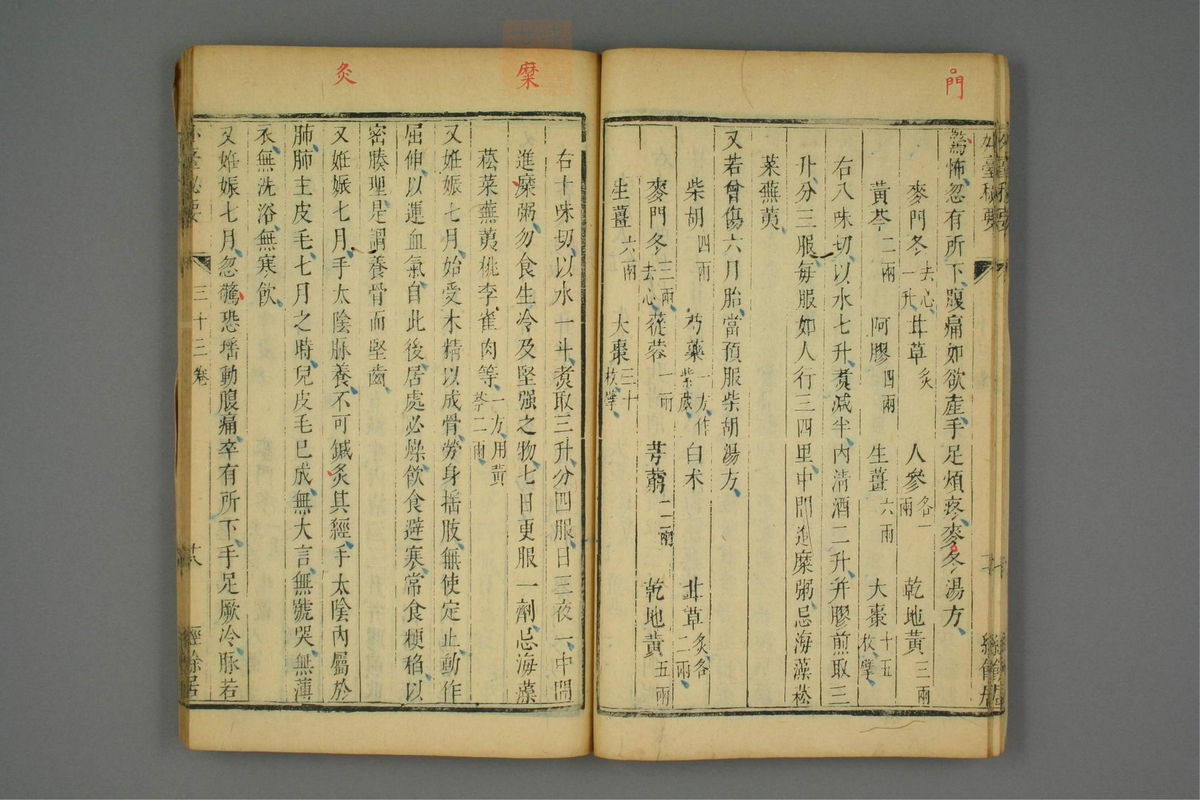 門
驚怖、忽有所下、腹痛如欲產、手足煩疼、麥冬湯方、
麥門冬去心一升 甘草炙 人參各一兩 乾地黃三兩
黃芩二兩 阿膠四兩 生薑六兩 大棗十五枚擘、
右八味切、以水七升、煑減半、內清酒二升、并膠煎取三
升、分三服、每服如人行三四里、中間進糜粥、忌海藻菘
菜蕪荑、
又若曾傷六月胎、當預服柴胡湯方、
柴胡四兩 芍藥一方作紫葳、 白朮 甘草炙各二兩、
麥門冬三兩去心、 蓯蓉一兩 芎藭二兩 乾地黃五兩
生薑六兩 大棗三十枚擘、
糜
灸
右十味切、以水一斗、煑取三升、分四服、日三夜一、中間
進糜粥、勿食生冷及堅强之物、七日更服一劑、忌海藻
菘菜蕪荑桃李雀肉等、一方用黃芩二兩、
又姙娠七月、始受木精以成骨、勞身搖肢、無使定止、動作
屈伸、以運血氣、自此後、居處必燥、飲食避寒、常食粳稻、以
密腠理、是謂養骨而堅齒、
又姙娠七月、手太陰脉養、不可鍼灸其經、手太陰內屬於
肺、肺主皮毛、七月之時、兒皮毛已成、無大言、無號哭、無薄
衣、無洗浴、無寒飲、
又姙娠七月、忽驚恐搖動腹痛、卒有所下、手足厥冷、脉若
外臺秘要 三十三卷 廿八 經餘居